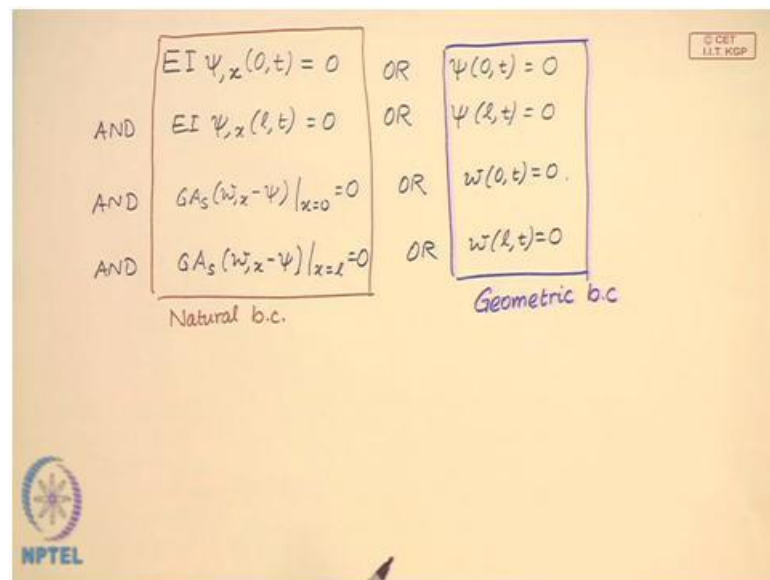 EI ψ,x(0,t) = 0 OR ψ(0,t) = 0
AND EI ψ,x(l,t) = 0 OR ψ(l,t) = 0
AND GAs(w,x-ψ)|x=0 =0 OR w(0,t)=0.
AND GAs(w,x-ψ)|x=l =0 OR w(l,t)=0
Natural b.c.
Geometric b.c
© CET
I.I.T. KGP
NPTEL